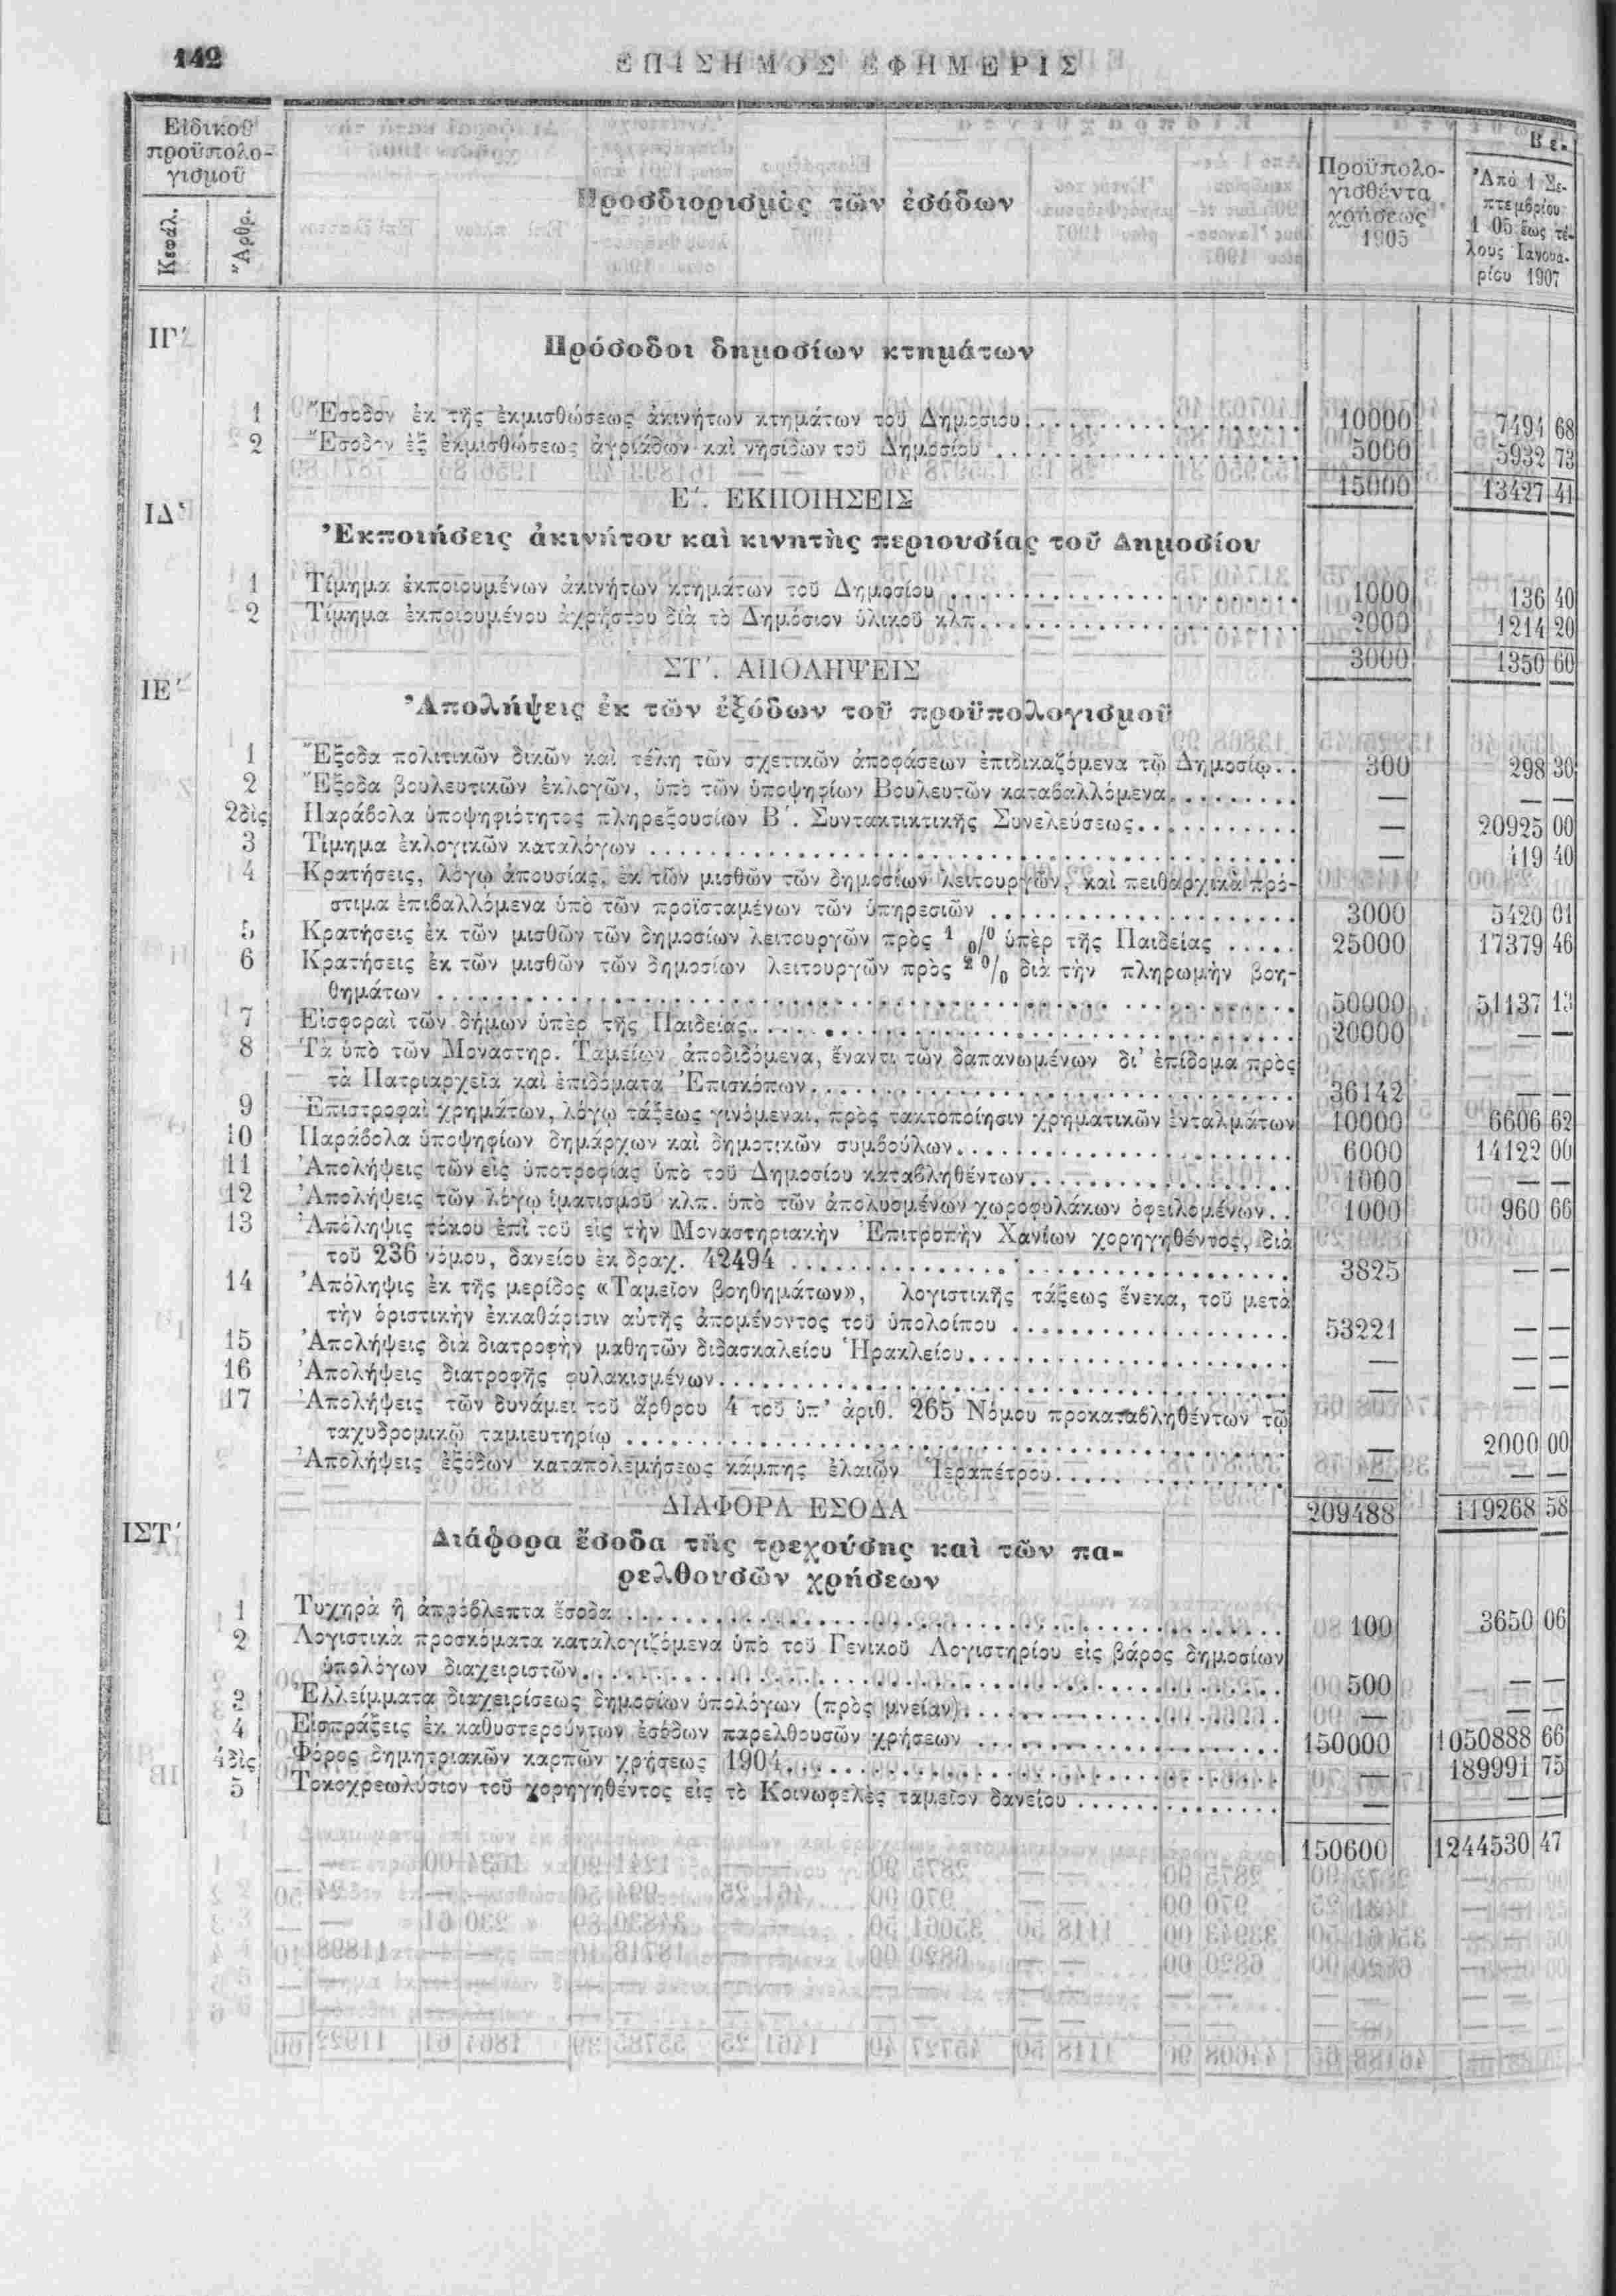 142
ΕΠΙΣΗΜΟΣ ΕΦΗΜΕΡΙΣ
Εἰδικοῦ προϋπολο-γισμοῦ
Κεφάλ.
Ἄρθρ.
Προσδιορισμὸς τῶν ἐσόδων
Προϋπολο-γισθέντα χρήσεως 1905
Βε-
Ἀπὸ 1 Σε-πτεμβρίου 1 05 ἕως τέ-λους Ἰανουα-ρίου 1907
ΙΓ΄
Πρόσοδοι δημοσίων κτημάτων
1 Ἔσοδον ἐκ τῆς ἐκμισθώσεως ἀκινήτων κτημάτων τοῦ Δημοσίου 10000 7494 68
2 Ἔσοδον ἐξ ἐκμισθώσεως ἀγριάδων καὶ νησίδων τοῦ Δημοσίου 5000 5932 73
15000 13427 41
Ε΄. ΕΚΠΟΙΗΣΕΙΣ
ΙΔ΄
Ἐκποιήσεις ἀκινήτου καὶ κινητῆς περιουσίας τοῦ Δημοσίου
1 Τίμημα ἐκποιουμένων ἀκινήτων κτημάτων τοῦ Δημοσίου 1000 136 40
2 Τίμημα ἐκποιουμένου ἀχρήστου διὰ τὸ Δημόσιον ὑλικοῦ κλπ. 2000 1214 20
3000 1350 60
ΣΤ΄. ΑΠΟΛΗΨΕΙΣ
ΙΕ΄
Ἀπολήψεις ἐκ τῶν ἐξόδων τοῦ προϋπολογισμοῦ
1 Ἔξοδα πολιτικῶν δικῶν καὶ τέλη τῶν σχετικῶν ἀποφάσεων ἐπιδικαζόμενα τῷ Δημοσίῳ.. 300 298 30
2 Ἔξοδα βουλευτικῶν ἐκλογῶν, ὑπὸ τῶν ὑποψηφίων Βουλευτῶν καταβαλλόμενα — — —
2δὶς Παράβολα ὑποψηφιότητος πληρεξουσίων Β΄. Συντακτικτικῆς Συνελεύσεως — 20925 00
3 Τίμημα ἐκλογικῶν καταλόγων — 419 40
4 Κρατήσεις, λόγῳ ἀπουσίας, ἐκ τῶν μισθῶν τῶν δημοσίων λειτουργῶν, καὶ πειθαρχικὰ πρό-
στιμα ἐπιβαλλόμενα ὑπὸ τῶν προϊσταμένων τῶν ὑπηρεσιῶν 3000 5420 01
5 Κρατήσεις ἐκ τῶν μισθῶν τῶν δημοσίων λειτουργῶν πρὸς 1 0/0 ὑπὲρ τῆς Παιδείας 25000 17379 46
6 Κρατήσεις ἐκ τῶν μισθῶν τῶν δημοσίων λειτουργῶν πρὸς 2 0/0 διὰ τὴν πληρωμὴν βοη-
θημάτων 50000 51137 13
7 Εἰσφοραὶ τῶν δήμων ὑπὲρ τῆς Παιδείας 20000 — —
8 Τὰ ὑπὸ τῶν Μοναστηρ. Ταμείων ἀποδιδόμενα, ἔναντι τῶν δαπανωμένων δι' ἐπίδομα πρὸς
τὰ Πατριαρχεῖα καὶ ἐπιδόματα Ἐπισκόπων 36142 — —
9 Ἐπιστροφαὶ χρημάτων, λόγῳ τάξεως γινόμεναι, πρὸς τακτοποίησιν χρηματικῶν ἐνταλμάτων 10000 6606 62
10 Παράβολα ὑποψηφίων δημάρχων καὶ δημοτικῶν συμβούλων 6000 14122 00
11 Ἀπολήψεις τῶν εἰς ὑποτροφίας ὑπὸ τοῦ Δημοσίου καταβληθέντων 1000 — —
12 Ἀπολήψεις τῶν λόγῳ ἱματισμοῦ κλπ. ὑπὸ τῶν ἀπολυομένων χωροφυλάκων ὀφειλομένων.. 1000 960 66
13 Ἀπόληψις τόκου ἐπὶ τοῦ εἰς τὴν Μοναστηριακὴν Ἐπιτροπὴν Χανίων χορηγηθέντος, διὰ
τοῦ 236 νόμου, δανείου ἐκ δραχ. 42494 3825 — —
14 Ἀπόληψις ἐκ τῆς μερίδος «Ταμεῖον βοηθημάτων», λογιστικῆς τάξεως ἕνεκα, τοῦ μετὰ
τὴν ὁριστικὴν ἐκκαθάρισιν αὐτῆς ἀπομένοντος τοῦ ὑπολοίπου 53221 — —
15 Ἀπολήψεις διὰ διατροφὴν μαθητῶν διδασκαλείου Ἡρακλείου — — —
16 Ἀπολήψεις διατροφῆς φυλακισμένων — — —
17 Ἀπολήψεις τῶν δυνάμει τοῦ ἄρθρου 4 τοῦ ὑπ' ἀριθ. 265 Νόμου προκαταβληθέντων τῷ
ταχυδρομικῷ ταμιευτηρίῳ — 2000 00
Ἀπολήψεις ἐξόδων καταπολεμήσεως κάμπης ἐλαιῶν Ἱεραπέτρου — — —
ΔΙΑΦΟΡΑ ΕΣΟΔΑ 209488 119268 58
ΙΣΤ΄
Διάφορα ἔσοδα τῆς τρεχούσης καὶ τῶν πα-
ρελθουσῶν χρήσεων
1 Τυχηρὰ ἢ ἀπρόβλεπτα ἔσοδα 100 3650 06
2 Λογιστικὰ προσκόματα καταλογιζόμενα ὑπὸ τοῦ Γενικοῦ Λογιστηρίου εἰς βάρος δημοσίων
ὑπολόγων διαχειριστῶν 500 — —
3 Ἐλλείμματα διαχειρίσεως δημοσίων ὑπολόγων (πρὸς μνείαν) — — —
4 Εἰσπράξεις ἐκ καθυστερούντων ἐσόδων παρελθουσῶν χρήσεων 150000 1050888 66
4δὶς Φόρος δημητριακῶν καρπῶν χρήσεως 1904 — 189991 75
5 Τοκοχρεωλύσιον τοῦ χορηγηθέντος εἰς τὸ Κοινωφελὲς ταμεῖον δανείου — — —
150600 1244530 47